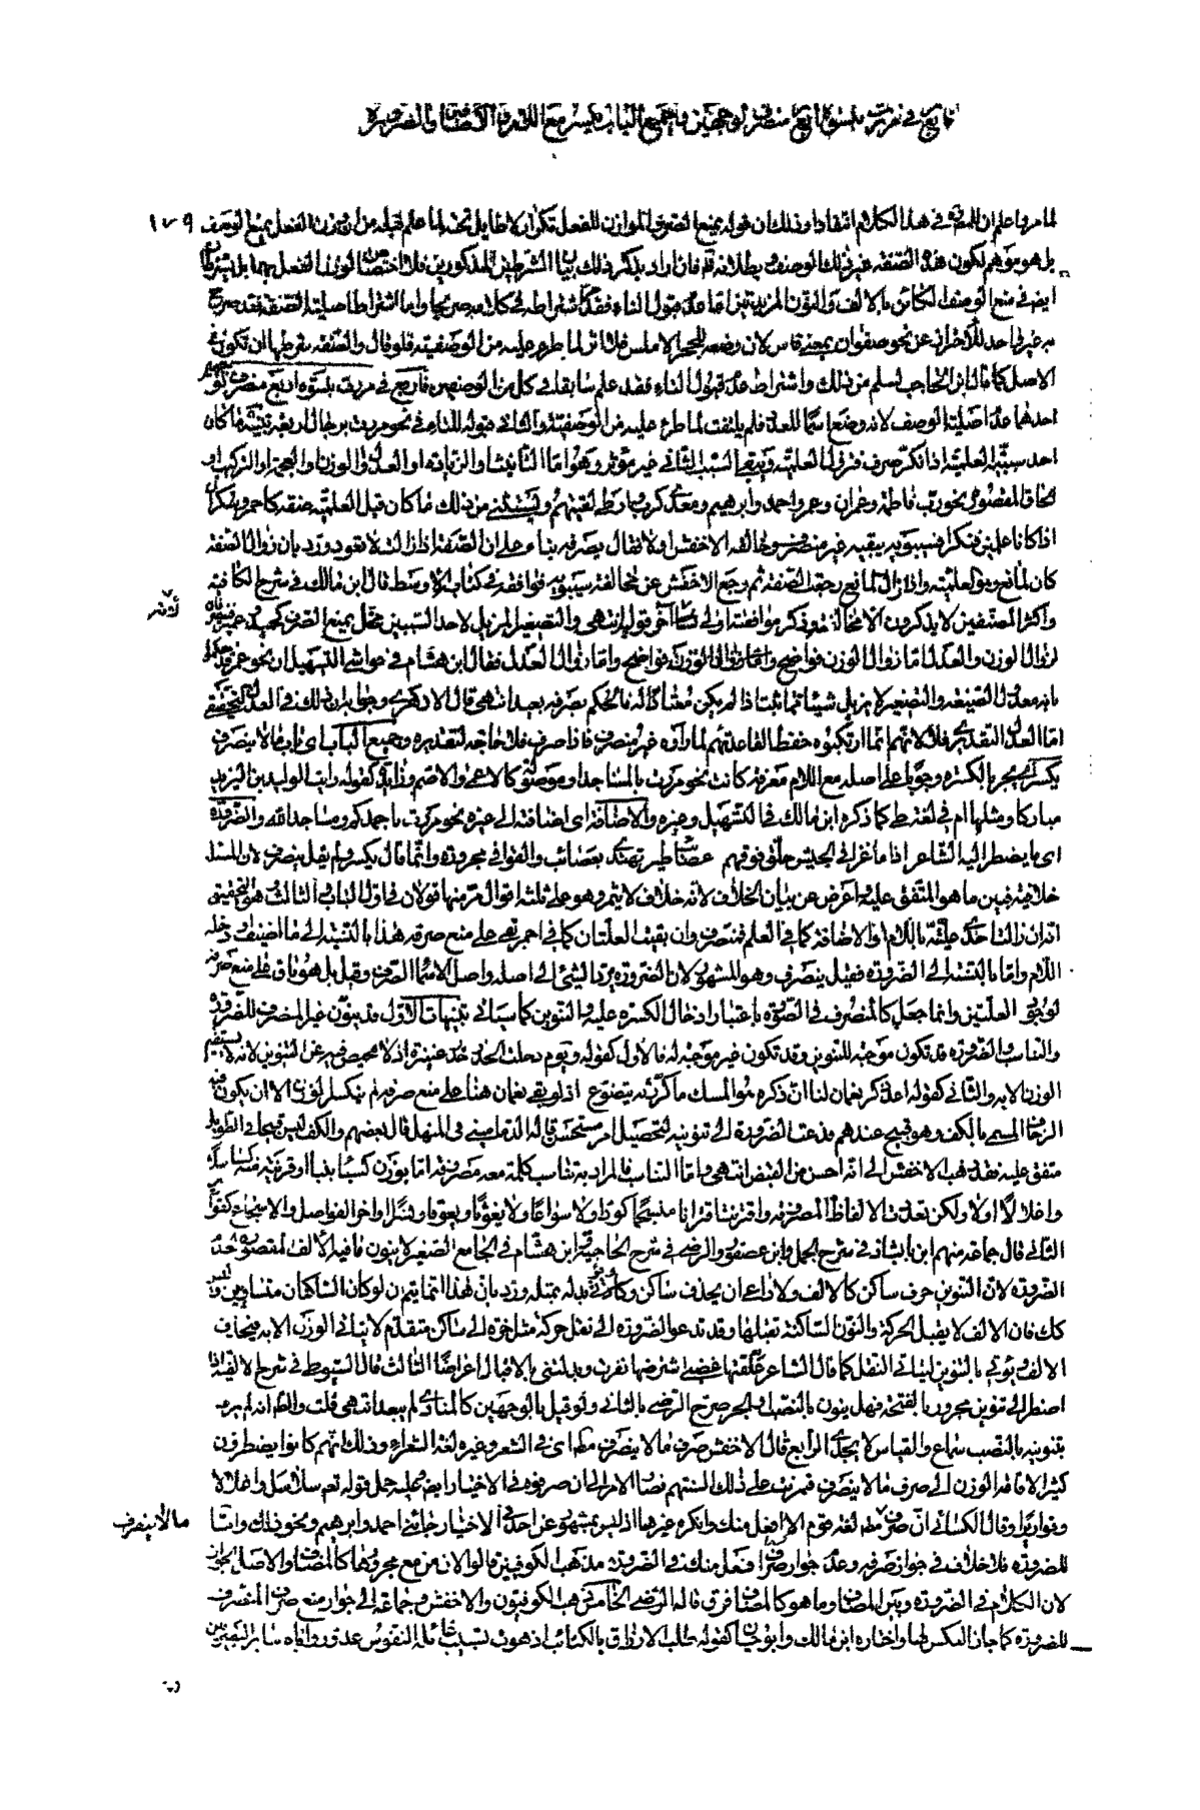 فاربع في مررت بنسوة اربع منصرف لوجهين وجميع الباب يكسر مع اللام والاضافة والضرورة
١٧٩
لما مر واعلم ان للمص في هذا الكلام انتقادا وذلك ان قوله يمنع الصرف الموازن للفعل تكرار لا طايل تحته لما علم قبله من ان وزن الفعل يمنع الوصف
بل هو موهم لكون هذه الصفة غير ذلك الوصف وبطلانه تم فان اراد بذكر ذلك بيان الشرطين المذكورين فلا اختصاص لوزن الفعل بهما بل يشترطان
ايض في منع الوصف الكائن بالالف والنون المزيدتين اما عدم قبول التاء فقد اشتراطه في كلامه صريحا واما اشتراط اصلية الصفة فقد صرح
به غير واحد للاحتراز عن نحو صفوان بمعنى قاس لان وضعه للحجر الاملس فلا اثر لما طرء عليه من الوصفية فلو قال والصفة شرطها ان تكون في
الاصل كما قال ابن الحاجب لسلم من ذلك واشتراط عدم قبول التاء فقد علم سابقا في كل من الوصفين فاربع في مررت بنسوة اربع منصرف لو
احدهما عدم اصلية الوصف لانه وضع اسما للعدد فلم يلتفت لما طرء عليه من الوصفية والثاني قبوله للتاء في نحو مررت برجال اربعة تنبيه ما كان
احد سببيه العلمية اذا نكر صرف لزوال العلمية ويبقى السبب الثاني غير مؤثر وهو اما التانيث او الزيادة او العدل او الوزن او العجمة او التركيب او
الحاق المقصور نحو رب فاطمة وعمران وعمر واحمد وابرهيم ومعدي كرب وارطى لقيتهم ويستثنى من ذلك ما كان قبل العلمية صفة كاحمر وسكران
اذا كانا علمين فنكرا فسيبويه يبقيه غير منصرف وخالفه الاخفش اولا فقال يصرفه بناء على ان الصفة اذا زالت لا تعود ورد بان زوال الصفة
كان لمانع وهو العلمية واذا زال المانع رجعت الصفة ثم رجع الاخفش عن مخالفة سيبويه فوافقه في كتاب الاوسط قال ابن مالك في شرح الكافية
واكثر المصنفين لا يذكرون الا مخالفته وذكر موافقته اولى لانها آخر قوليه انتهى والتصغير المزيل لاحد السببين مخل بمنع الصرف كحميد وعمير
لزوال الوزن والعدل اما زوال الوزن فواضح واما زوال العدل فقال ابن هشام في حواشي التسهيل ان نحو عمر قد حكم
بانه معدول الصيغة والتصغير لا يزيل شيئا مما ثبت اذا لم يكن مضادا له فالحكم بصرفه بعيد انتهى قال الازهري وجوابه ان ذلك في العدل التحقيقي
اما العدل التقديري فلا لانهم انما ارتكبوه حفظا لقاعدتهم لما راوه غير منصرف فاذا صرف فلا حاجة لتقديره وجميع الباب اي باب ما لا ينصرف
يكسر اي يجر بالكسرة وجوبا على اصله مع اللام معرفة كانت نحو مررت بالمساجد او موصولة كالاعمى والاصم وزائدة كقوله رايت الوليد بن اليزيد
مباركا ومثلها ام في لغة طي كما ذكره ابن مالك في التسهيل وغيره والاضافة اي اضافته الى غيره نحو مررت باحمدكم ومساجد الله والضرورة
اي ما يضطر اليه الشاعر اذا ما غزا في الجيش حلق فوقهم عصائب طير تهتدي بعصائب والقوافي مجرورة وانما قال يكسر ولم يقل ينصرف لان المسئلة
خلافية فبين ما هو المتفق عليه واعرض عن بيان الخلاف لانه خلاف لا يثمر وهو على ثلثة اقوال مر منها قولان في اول الباب الثالث هو التحقيق
انه ان زالت احدى علتيه باللام او الاضافة كما في العلم فمنصرف وان بقيت العلتان كما في احمر بقي على منع صرفه هذا بالنسبة الى ما اضيف او دخله
اللام واما بالنسبة الى الضرورة فقيل ينصرف وهو المشهور لان الضرورة ترد الشيئ الى اصله واصل الاسماء الصرف وقيل بل هو باق على منع صرفه
لوجود العلتين وانما جعل كالمنصرف في الصورة باعتبار ادخال الكسرة عليه والتنوين كما سياتي تنبيهات الاول قد ينون غير المنصرف للضرورة
والتناسب والضرورة قد تكون موجبة للتنوين وقد تكون غير موجبة له فالاول كقوله ويوم دخلت الخدر خدر عنيزة اذ لا محيص فيه عن التنوين لانه لا يستقيم
الوزن الا به والثاني كقوله اعد ذكر نعمان لنا ان ذكره هو المسك ما كررته يتضوع اذ لو بقي نعمان هنا على منع صرفه لم ينكسر الوزن الا ان يكون فيه
الزحاف المسمى بالكف وهو قبيح عندهم فدعت الضرورة الى تنوينه لتحصيل امر مستحسن قاله الدماميني في المنهل قال بعضهم والكف ليس قبيحا في الطويل
متفق عليه فقد ذهب الاخفش الى انه احسن من القبض انتهى واما التناسب فالمراد به تناسب كلمة معه مصرفة اما بوزن كسبأ بنبأ او قريبة منه كسلاسلا
واغلالا اولا ولكن تعددت الالفاظ المصرفة واقترنت اقترانا متناسبا كودا ولا سواعا ولا يغوثا ويعوقا ونسرا واخر الفواصل والاسجاع كقواريرا
الثاني قال جماعة منهم ابن بابشاذ في شرح الجمل وابن عصفور والرضي في شرح الحاجبية وابن هشام في الجامع الصغير لا ينون ما فيه الف مقصورة عند
الضرورة لان التنوين حرف ساكن كالالف ولا داعي ان يحذف ساكن ويؤتى بدله بمثله ورد بان هذا انما يتم ان لو كان الساكنان متساويين وليس
كك فان الالف لا يقبل الحركة والنون الساكنة تقبلها وقد تدعو الضرورة الى نقل حركة متاخرة الى ساكن متقدم لا يتاتى الوزن الا به فيحذف
الالف ويؤتى بالتنوين ليتاتى النقل كما قال الشاعر اعراضا الثالث قال السيوطي في شرح الالفية اذا
اضطر الى تنوين مجرور بالفتحة فهل ينون بالنصب او الجر صرح الرضي بالثاني ولو قيل بالوجهين كالمنادى لم يبعد انتهى قلت والظ انه لم يرد
بتنوينه بالنصب سماع والقياس لا يجدي الرابع قال الاخفش صرف ما لا ينصرف مط اي في الشعر وغيره لغة الشعراء وذلك انهم كانوا يضطرون
كثيرا لاقامة الوزن الى صرف ما لا ينصرف فمرنت على ذلك السنتهم فصار الامر الى ان صرفوه في الاختيار ايض وعليه حمل قوله تعم سلاسلا واغلالا
وقواريرا وقال الكسائي ان صرف ما لا ينصرف مط لغة قوم الا افعل منك وانكره غيرهما اذ ليس بمشهور عن احد في الاختيار جائني احمد وابرهيم ونحو ذلك واما
للضرورة فلا خلاف في جواز صرفه وعدم جواز صرف افعل منك في الضرورة مذهب الكوفيين قالوا لان من مع مجرورها كالمضاف اليه والاصل الجواز
لان الكلام في الضرورة وبين المضاف وما هو كالمضاف فرق قاله الرضي الخامس ذهب الكوفيون والاخفش وجماعة الى جواز منع صرف المنصرف
للضرورة كما جاز العكس لها واختاره ابن مالك وابو حيان كقوله طلب الازارق بالكتائب اذ هوت بشبيب غائلة النفوس غدور واباه سائر البصريين
لانه
ما لا ينصرف